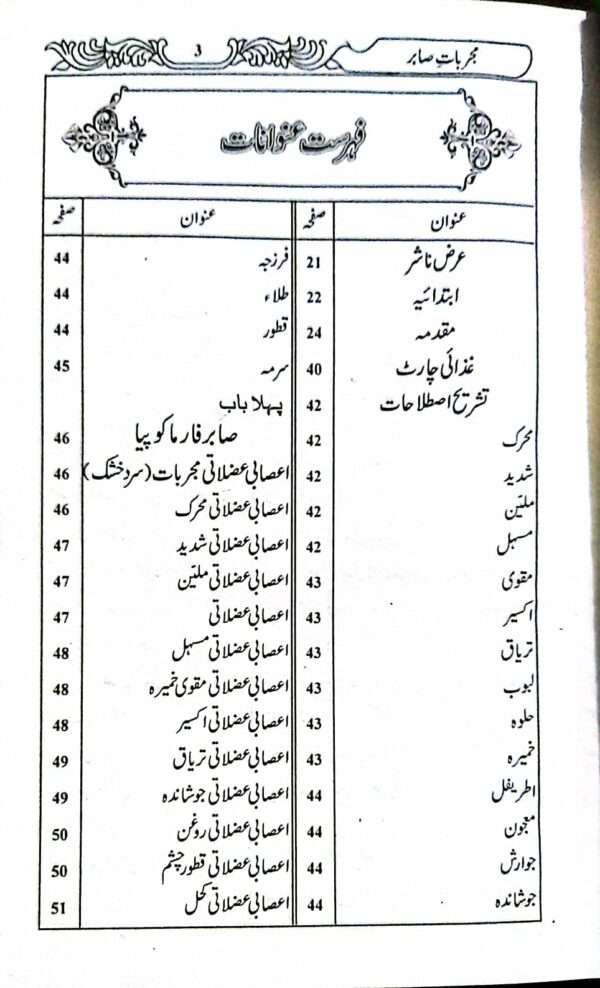 مجربات صابر
3
فہرست عنوانات
عنوان صفحہ
عرض ناشر 21
ابتدائیہ 22
مقدمہ 24
غذائی چارٹ 40
تشریح اصطلاحات 42
محرک 42
شدید 42
ملیّن 42
مسہل 42
مقوی 43
اکسیر 43
تریاق 43
لبوب 43
حلوہ 43
خمیرہ 43
اطریفل 44
معجون 44
جوارش 44
جوشاندہ 44
عنوان صفحہ
فرزجہ 44
طلاء 44
قطور 44
سرمہ 45
پہلا باب
صابر فارماکوپیا 46
اعصابی عضلاتی مجربات (سرد خشک) 46
اعصابی عضلاتی محرک 46
اعصابی عضلاتی شدید 47
اعصابی عضلاتی ملیّن 47
اعصابی عضلاتی 47
اعصابی عضلاتی مسہل 48
اعصابی عضلاتی مقوی خمیرہ 48
اعصابی عضلاتی اکسیر 48
اعصابی عضلاتی تریاق 49
اعصابی عضلاتی جوشاندہ 49
اعصابی عضلاتی روغن 50
اعصابی عضلاتی قطور چشم 50
اعصابی عضلاتی کحل 51